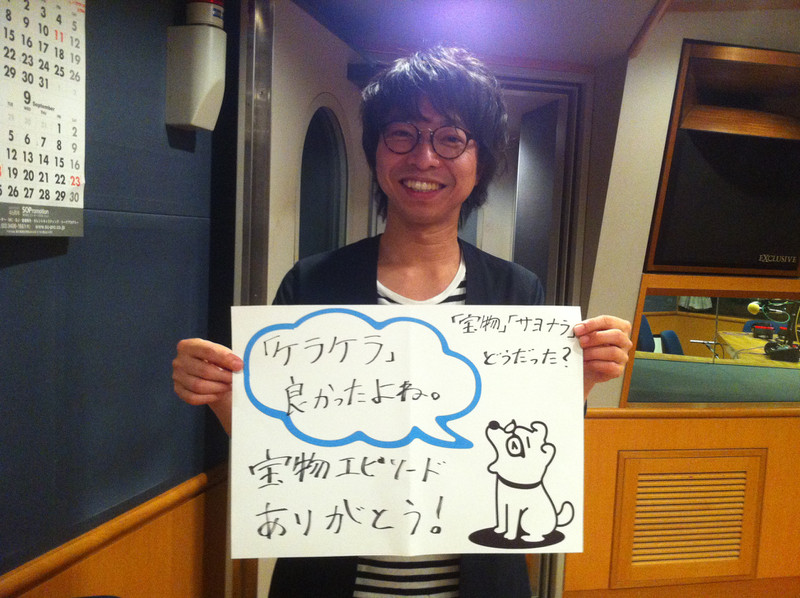 8 9 10 11 12
15 16 17 18 19
22 23 24 25 26
29 30 31
9 September
1 2
5 6 7 8 9
12 13 14 15 16
19 20 21 22 23
26 27 28 29 30
SOPromotion
EXCLUSIVE
「宝物」「サヨナラ」
どうだった?
「ケラケラ」
良かったよね。
宝物エピソード
ありがとう!
A